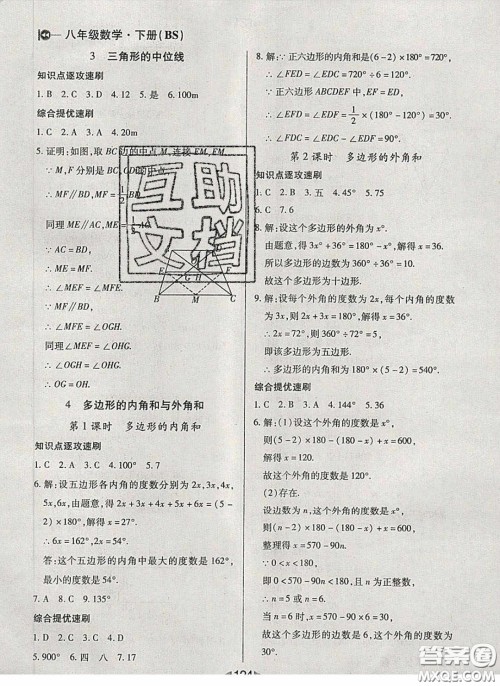 八年级数学·下册(BS)
3 三角形的中位线
知识点逐攻速刷
1. B 2. C 3. D 4. 12 5. 是 6. 100m
综合提优速刷
1. A 2. C 3. A 4. 20m
5. 证明:如图,取BC边的中点M,连接EM,FM.
∵M,F分别是BC,CD的中点,
∴MF∥BD,MF=1/2BD.
同理ME∥AC,ME=1/2AC.
∵AC=BD,
∴ME=MF.
∴∠MEF=∠MFE.
∵MF∥BD,
∴∠MFE=∠OGH.
同理,∠MEF=∠OHG.
∴∠OGH=∠OHG.
∴OG=OH.
A
D
E
F
G
H
B
M
C
互助
文档
4 多边形的内角和与外角和
第1课时 多边形的内角和
知识点逐攻速刷
1. C 2. A 3. D 4. 100° 5. 7
6. 解:设五边形各内角的度数分别为2x,3x,4x,
5x,6x,由题意,得2x+3x+4x+5x+6x=(5-
2)×180°,解得x=27°.
∴6x=162°,2x=54°.
答:这个五边形的内角中最大的度数是162°,
最小的度数是54°.
7. A 8. C 9. 135°
综合提优速刷
1. C 2. D 3. B 4. A
5. 900° 6. 四 八 7. 17
8. 解:∵正六边形的内角和是(6-2)×180°=720°,
∴∠FED=∠EDC=720°÷6=120°.
∵正六边形ABCDEF中,EF=ED,
∴∠EFD=∠EDF=1/2×(180°-120°)=30°.
∴∠FDC=∠EDC-∠EDF=90°.
第2课时 多边形的外角和
知识点逐攻速刷
1. C 2. B 3. 五 4. 45° 5. 75
6. C 7. 6
8. 解:设这个多边形的外角为x°.
由题意,得3x+36=180,解得x=36.
所以这个多边形的边数为360°÷36°=10.
故这个多边形为十边形.
9. 解:设每个外角的度数为2x,每个内角的度数
为3x,则2x+3x=180°,解得x=36°.
∴2x=72°,则360°÷72°=5.
即该多边形为五边形.
综合提优速刷
1. C 2. B 3. A 4. 144° 5. 36
6. 解:(1)设这个外角的度数是x°,
则(5-2)×180-(180-x)+x=600,
解得x=120.
故这个外角的度数是120°.
(2)存在.
设边数为n,这个外角的度数是x°,
则(n-2)×180-(180-x)+x=600,
整理得x=570-90n.
∵0<x<180,
即0<570-90n<180,并且n为正整数,
∴n=5或n=6.
当n=6时,这个外角的度数为x=570-90×6=
30°.
故这个多边形的边数是6,这个外角的度数为
30°.
124
答案圈
MXQE.COM